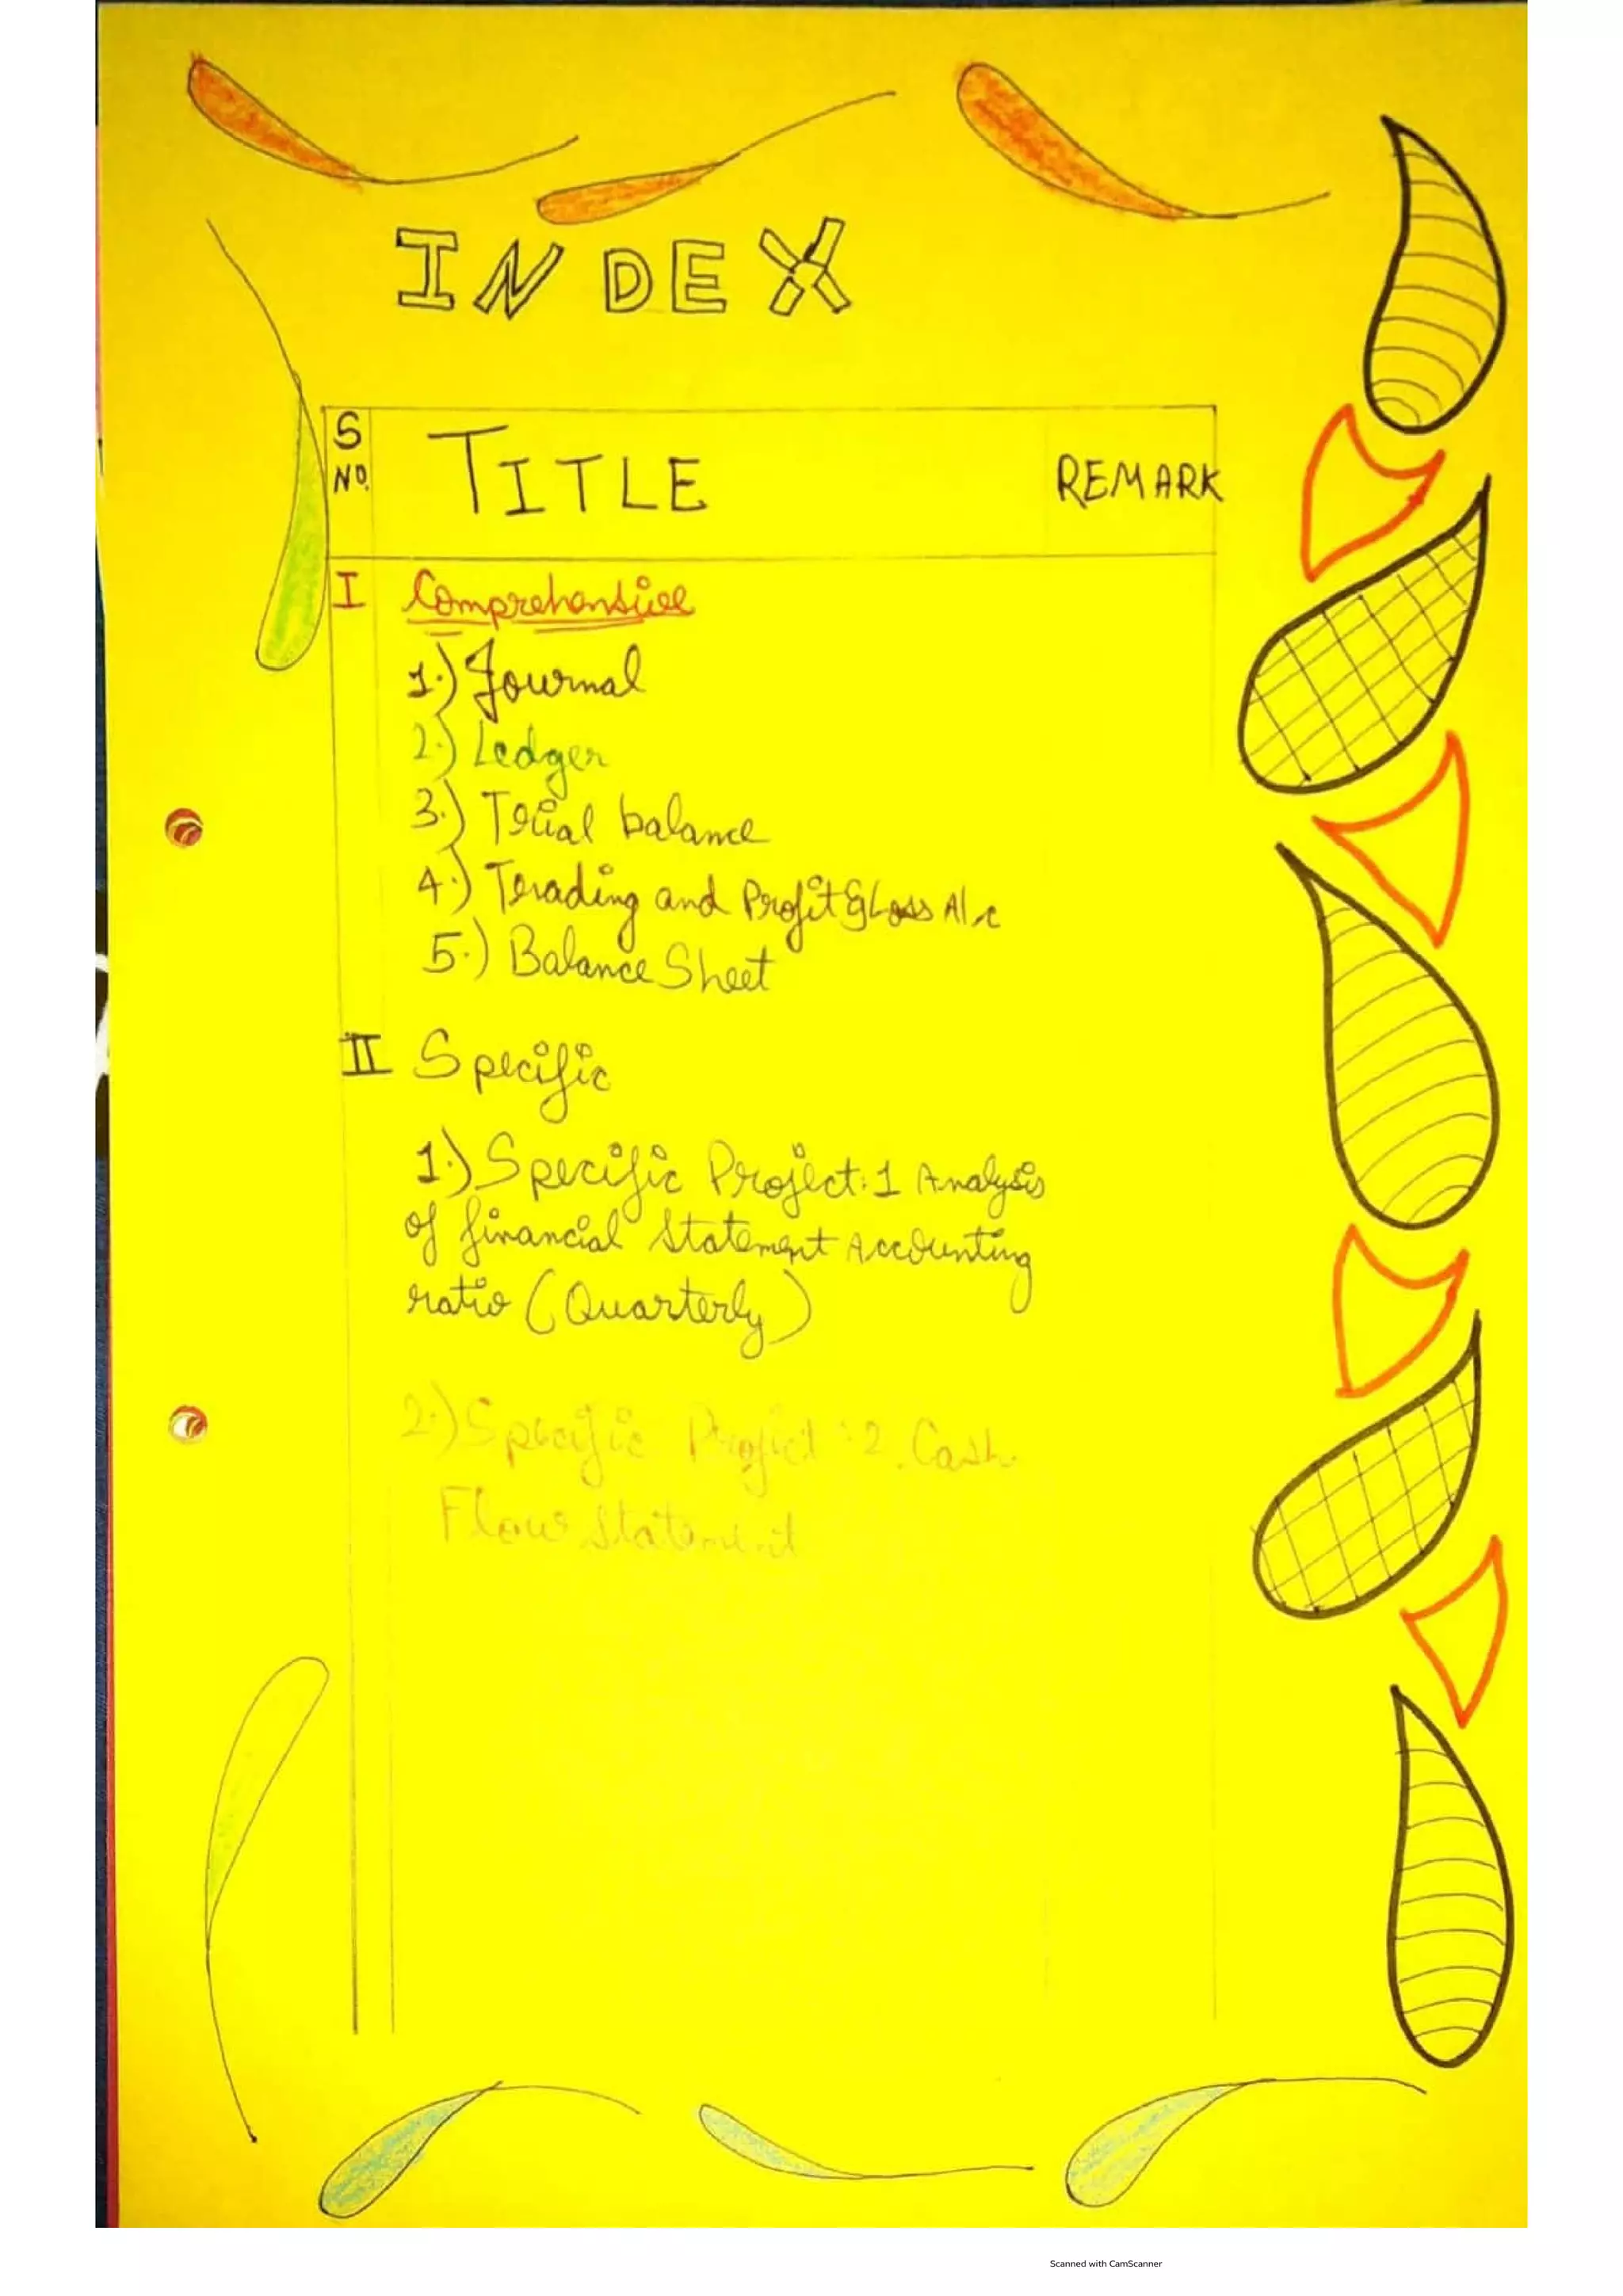 INDEX
S NO. TITLE REMARK
I Comprehensive
1.) Journal
2.) Ledger
3.) Trial balance
4.) Trading and Profit & Loss A/c
5.) Balance Sheet
II Specific
1.) Specific Project:1 Analysis
of financial Statement Accounting
ratio (Quarterly)
2.) Specific Project :2. Cash
Flow Statement
Scanned with CamScanner